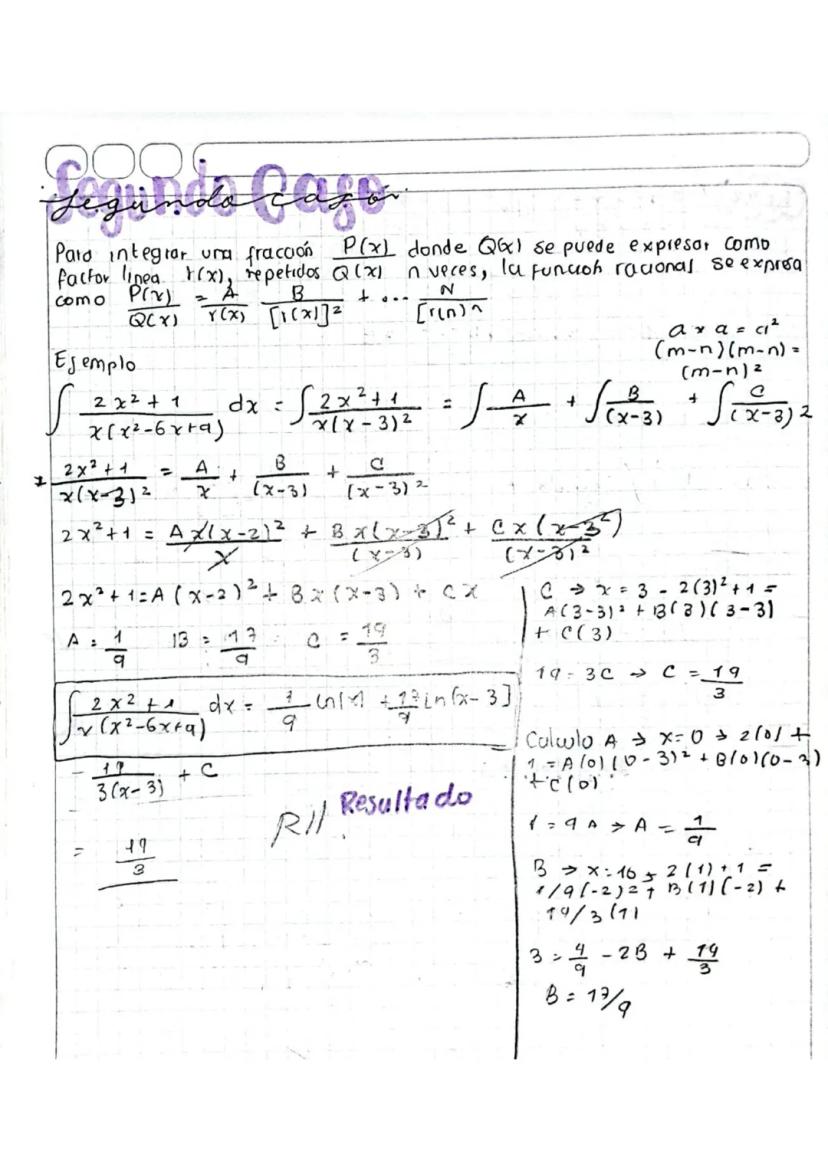 Segundo Caso
Segundo caso
Para integrar una fracción P(x)/Q(x) donde Q(x) se puede expresar como
factor linea r(x), repetidos n veces, la función racional se expresa
como P(x)/Q(x) = A/r(x) B/[r(x)]² + ... N/[r(n)ⁿ
a x a = a²
(m-n)(m-n) =
(m-n)²
Ejemplo
∫ 2x²+1/x(x²-6x+9) dx = ∫ 2x²+1/x(x-3)² = ∫ A/x + ∫ B/(x-3) + ∫ C/(x-3)²
2x²+1/x(x-3)² = A/x + B/(x-3) + C/(x-3)²
2x²+1 = Ax(x-2)²/x + Bx(x-3)²/(x-3) + Cx(x-3²)/(x-3)²
2x²+1=A(x-2)²+Bx(x-3)+Cx
A = 1/9 B = 17/9 C = 19/3
∫ 2x²+1/x(x²-6x+9) dx = 1/9 ln|x| + 17/9 ln(x-3]
- 19/3(x-3) + C
R// Resultado
= 19/3
C → x = 3 - 2(3)²+1 =
A(3-3)² + B(3)(3-3)
+ C(3)
19 = 3C → C = 19/3
Calculo A → x=0 → 2(0)+
1=A(0)(0-3)²+B(0)(0-3)
+C(0)
1 = 9A → A = 1/9
B → x=1
2(1)+1 =
1/9(-2)²+ B(1)(-2) +
19/3(1)
3 = 4/9 - 2B + 19/3
B = 17/9